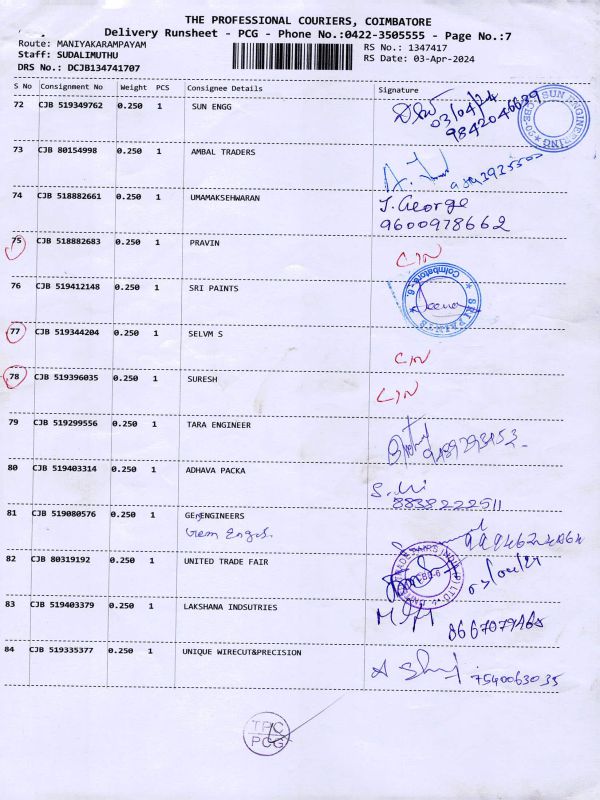 THE PROFESSIONAL COURIERS, COIMBATORE
Delivery Runsheet - PCG - Phone No.:0422-3505555 - Page No.:7
Route: MANIYAKARAMPAYAM RS No.: 1347417
Staff: SUDALIMUTHU RS Date: 03-Apr-2024
DRS No.: DCJB134741707
S No Consignment No Weight PCS Consignee Details Signature
72 CJB 519349762 0.250 1 SUN ENGG 03/04/24
9842046639
73 CJB 80154998 0.250 1 AMBAL TRADERS
74 CJB 518882661 0.250 1 UMAMAKSEHWARAN J. George
9600978662
75 CJB 518882683 0.250 1 PRAVIN C/N
76 CJB 519412148 0.250 1 SRI PAINTS Coimbatore-6. SRI PAINTS
77 CJB 519344204 0.250 1 SELVM S C/N
78 CJB 519396035 0.250 1 SURESH C/N
79 CJB 519299556 0.250 1 TARA ENGINEER
80 CJB 519403314 0.250 1 ADHAVA PACKA
8838222511
81 CJB 519080576 0.250 1 GEENGINEERS
82 CJB 80319192 0.250 1 UNITED TRADE FAIR
83 CJB 519403379 0.250 1 LAKSHANA INDSUTRIES
84 CJB 519335377 0.250 1 UNIQUE WIRECUT&PRECISION 7540063035
TPC
PCG